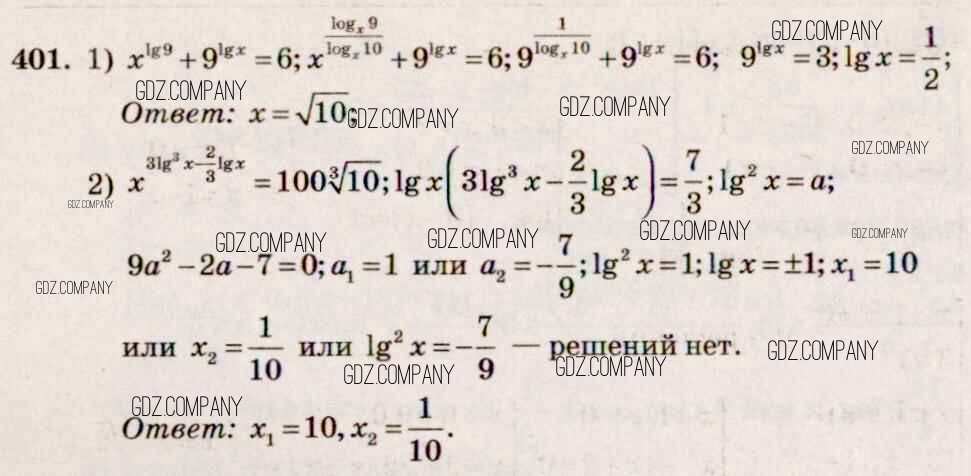 401. 1) x^{lg 9} + 9^{lg x} = 6; x^{\frac{log_x 9}{log_x 10}} + 9^{lg x} = 6; 9^{\frac{1}{log_x 10}} + 9^{lg x} = 6; 9^{lg x} = 3; lg x = \frac{1}{2};
GDZ.COMPANY
GDZ.COMPANY
Ответ: x = \sqrt{10};
GDZ.COMPANY
GDZ.COMPANY
GDZ.COMPANY
2) x^{3lg^3 x - \frac{2}{3} lg x} = 100\sqrt[3]{10}; lg x (3lg^3 x - \frac{2}{3} lg x) = \frac{7}{3}; lg^2 x = a;
GDZ.COMPANY
GDZ.COMPANY
GDZ.COMPANY
GDZ.COMPANY
GDZ.COMPANY
9a^2 - 2a - 7 = 0; a_1 = 1 или a_2 = -\frac{7}{9}; lg^2 x = 1; lg x = ±1; x_1 = 10
GDZ.COMPANY
или x_2 = \frac{1}{10} или lg^2 x = -\frac{7}{9} — решений нет.
GDZ.COMPANY
GDZ.COMPANY
GDZ.COMPANY
GDZ.COMPANY
Ответ: x_1 = 10, x_2 = \frac{1}{10}.